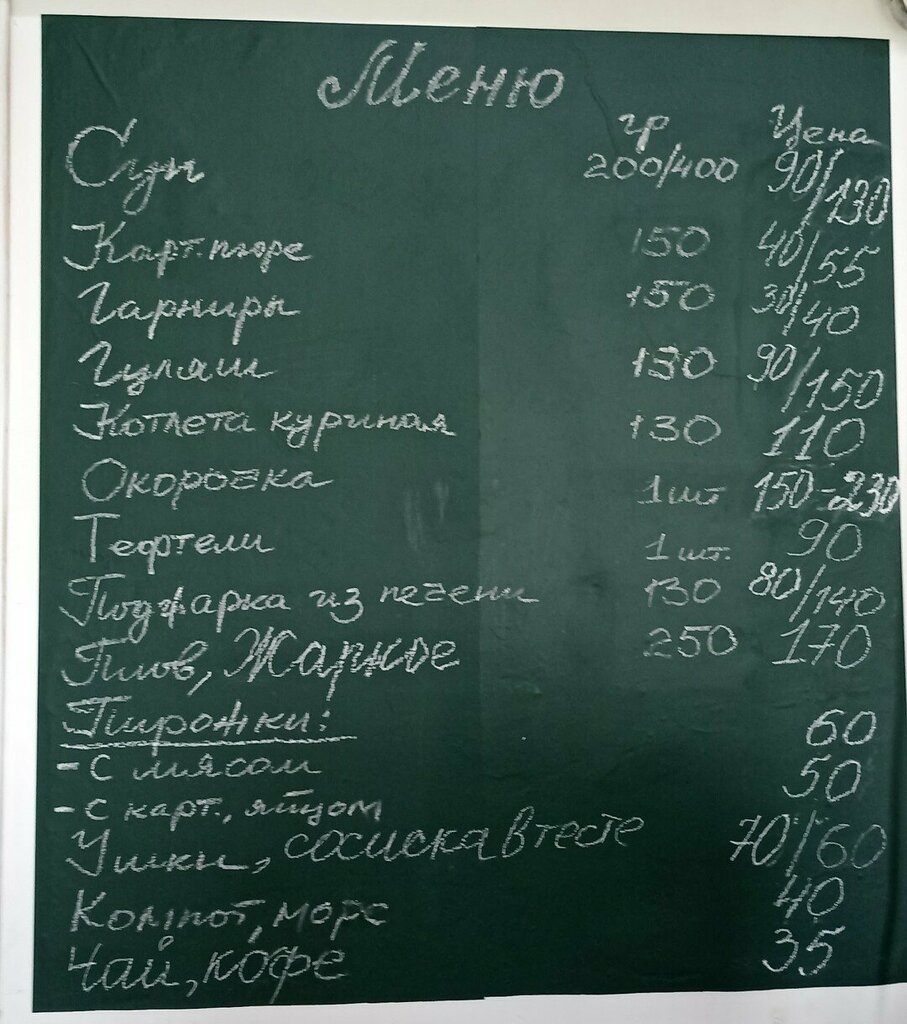 Меню
гр Цена
Суп 200/400 90/130
Карт.пюре 150 40/55
Гарниры 150 30/40
Гуляш 130 90/150
Котлета куриная 130 110
Окорочка 1шт 150-230
Тефтели 1шт. 90
Поджарка из печени 130 80/140
Плов, Жаркое 250 170
Пирожки:
-с мясом 60
-с карт., яйцом 50
Ушки, сосиска в тесте 70/60
Компот, морс 40
Чай, кофе 35